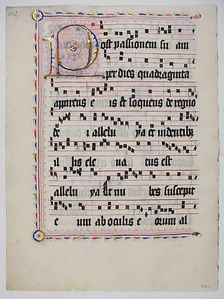 Post passionem su am
per dies quadraginta
apparens e is et loquens de regno
de i allelu ya et videntib
il lis ele va tus est
allelu ya et nu bes suscepit
e um ab oculis e orum al